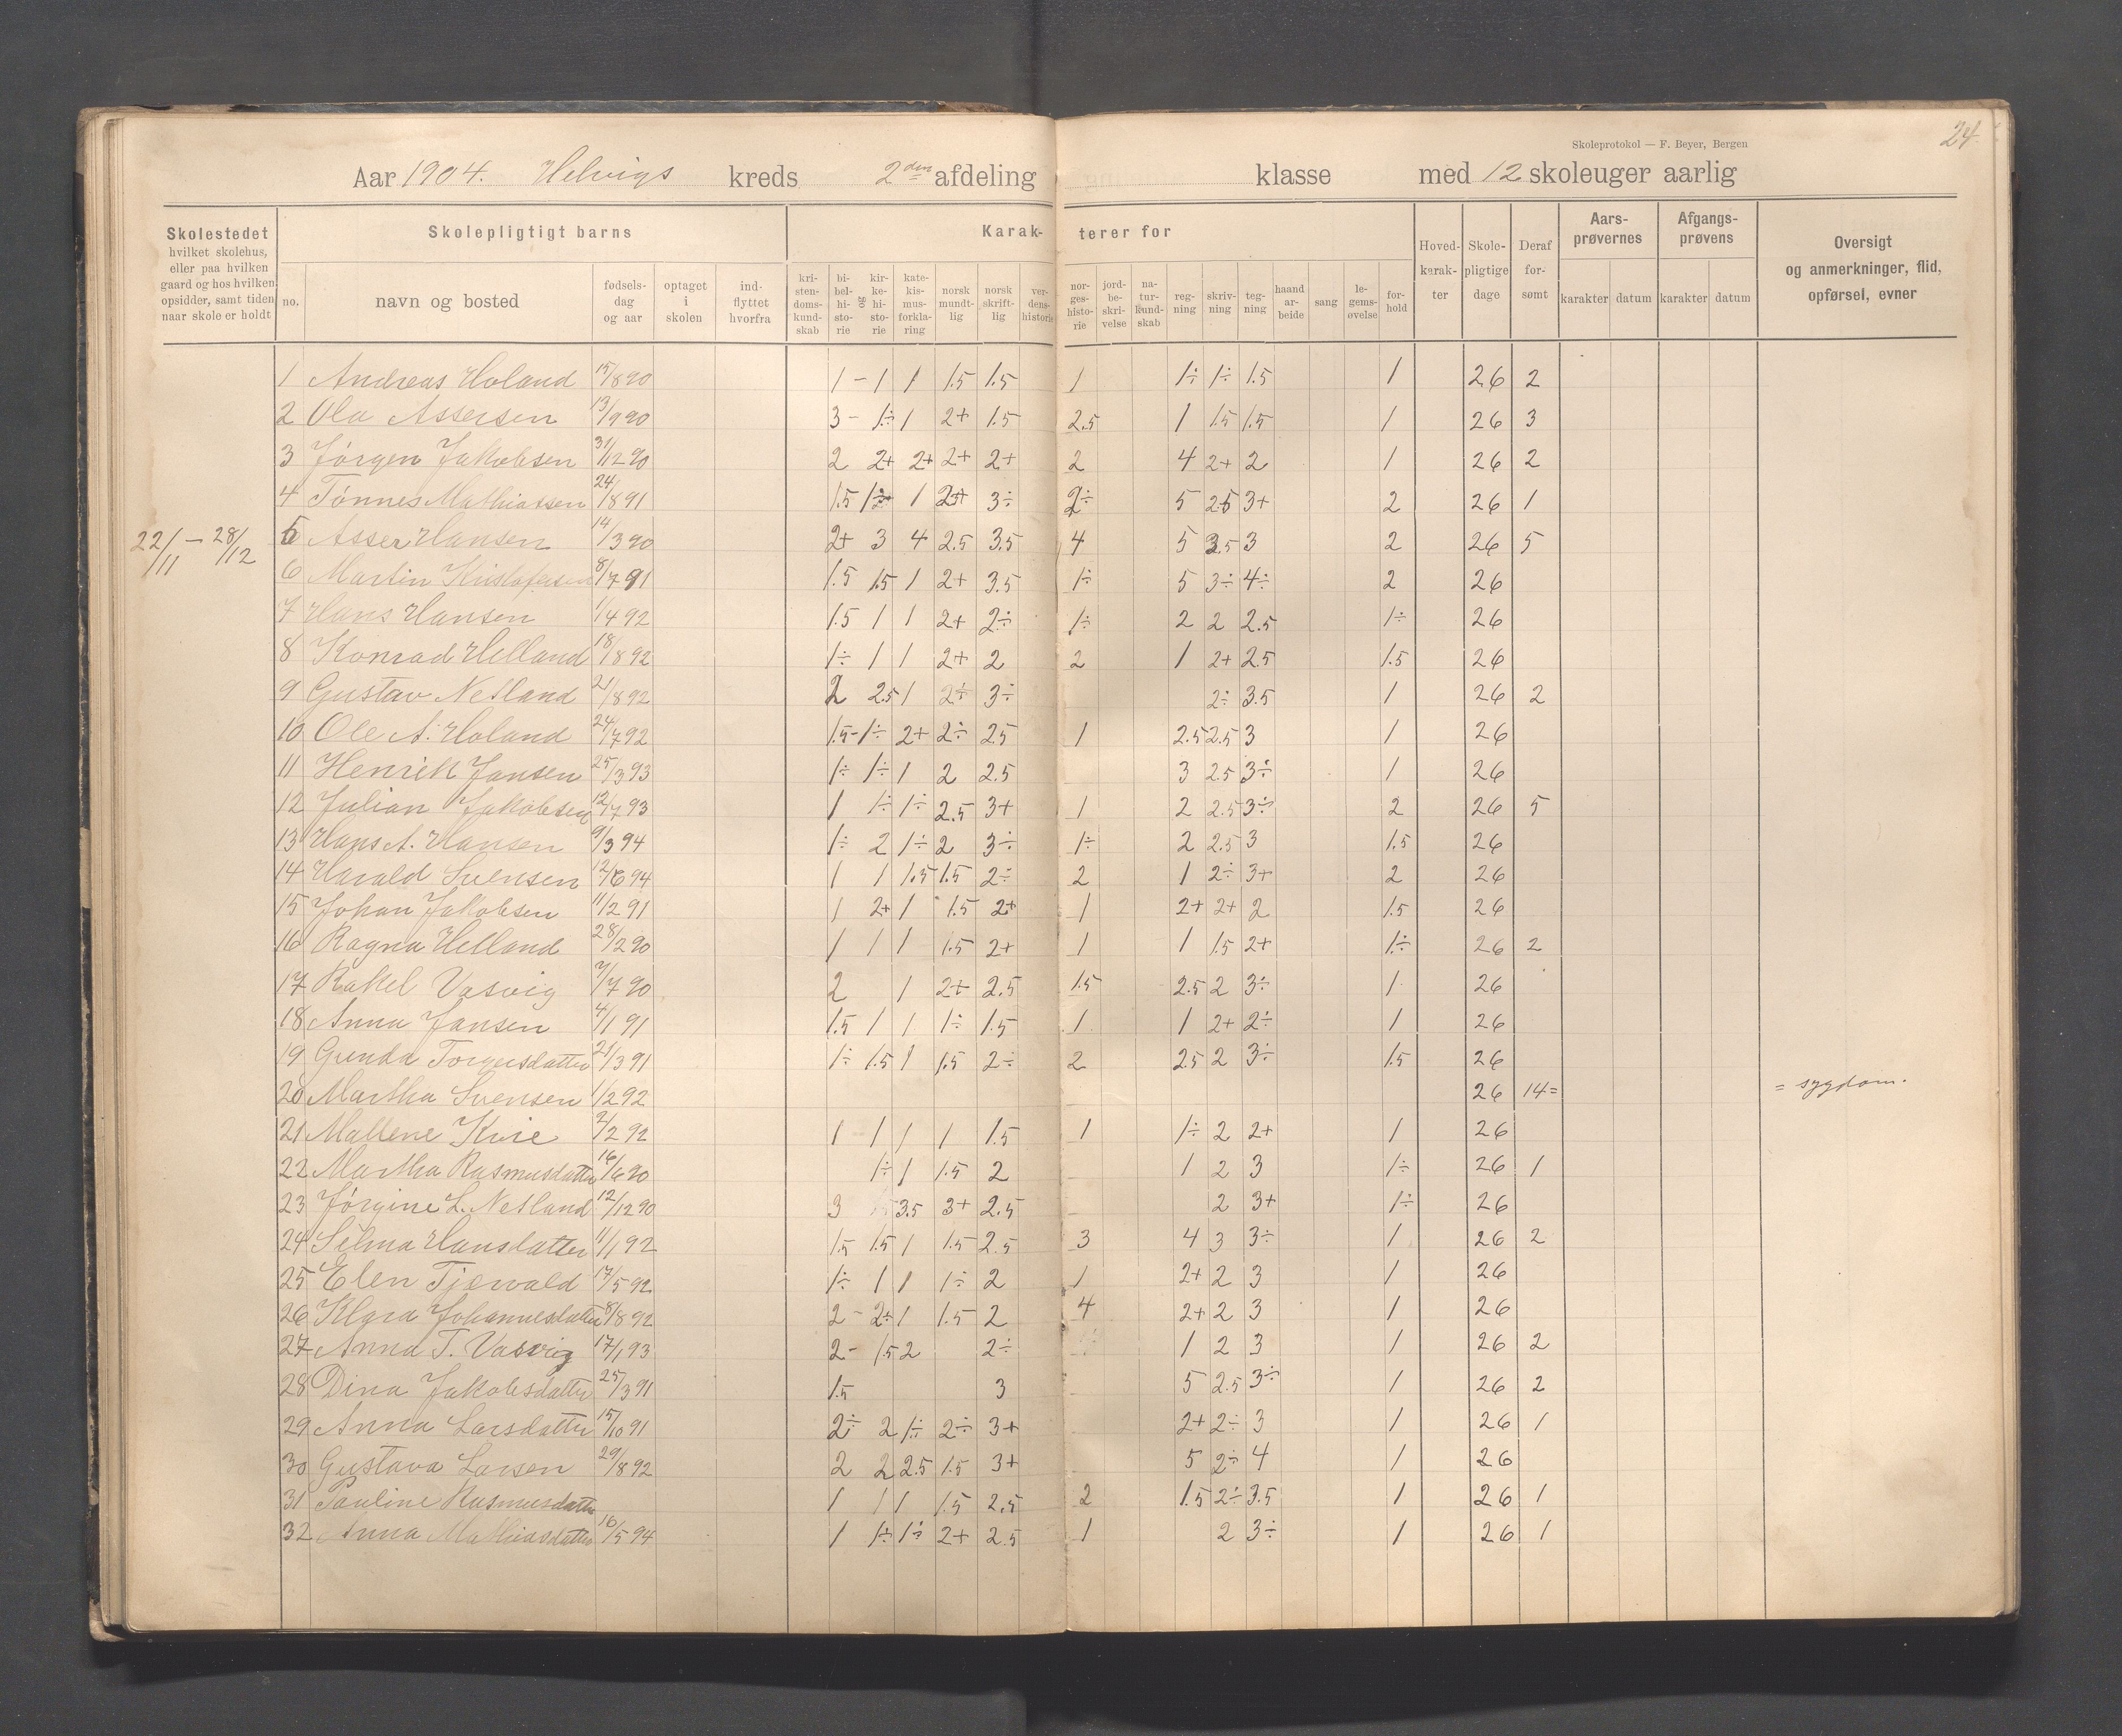 24
Skoleprotokol — F. Beyer, Bergen
Aar 1904. Helvigs kreds 2den afdeling klasse med 12 skoleuger aarlig
Skolestedet hvilket skolehus, eller paa hvilken gaard og hos hvilken opsidder, samt tiden naar skole er holdt
Skolepligtigt barns
Karak- terer for
no. navn og bosted fødsels- dag og aar optaget i skolen ind- flyttet hvorfra
kri- sten- doms- kund- skab bi- bel- hi- sto- rie og kir- ke- hi- storie kate- kis- mus- forkla- ring norsk mundt- lig norsk skrift- lig ver- dens- historie
nor- ges- histo- rie jord- be- skri- velse na- tur- kund- skab reg- ning skriv- ning teg- ning haand ar- beide sang le- gems- øvelse for- hold
Hoved- karak- ter Skole- pligtige dage Deraf for- sømt
Aars- prøvernes karakter datum Afgangs- prøvens karakter datum
Oversigt og anmerkninger, flid, opførsel, evner
22/11 — 28/12
1 Andreas Holand 15/8 90 1 - 1 1 1.5 1.5 1 1÷ 1÷ 1.5 1 26 2
2 Ola Assersen 13/9 90 3 - 1÷ 1 2+ 1.5 2.5 1 1.5 1.5 1 26 3
3 Jørgen Jakobsen 31/12 90 2 2+ 2+ 2+ 2+ 2 4 2+ 2 1 26 2
4 Tønnes Mathiassen 24/8 91 1.5 1÷ 1 2+ 3÷ 2÷ 5 2.5 3+ 2 26 1
5 Asser Hansen 14/3 90 2+ 3 4 2.5 3.5 4 5 3.5 3 2 26 5
6 Martin Kristofersen 8/7 91 1.5 1.5 1 2+ 3.5 1÷ 5 3÷ 4÷ 2 26
7 Hans Hansen 1/4 92 1.5 1 1 2+ 2÷ 1÷ 2 2 2.5 1÷ 26
8 Konrad Helland 18/8 92 1÷ 1 1 2+ 2 2 1 2+ 2.5 1.5 26
9 Gustav Nesland 21/8 92 2 2.5 1 2÷ 3÷ 2÷ 3.5 1 26 2
10 Ole A. Holand 24/7 92 1.5 - 1÷ 2+ 2÷ 2.5 1 2.5 2.5 3 1 26
11 Henrik Jansen 25/3 93 1÷ 1÷ 1 2 2.5 3 2.5 3÷ 1 26
12 Julian Jakobsen 12/7 93 1 1÷ 1÷ 2.5 3+ 1 2 2.5 3÷ 2 26 5
13 Hans A. Hansen 9/3 94 1÷ 2 1÷ 2 3÷ 1÷ 2 2.5 3 1.5 26
14 Harald Svensen 12/6 94 1 1 1.5 1.5 2÷ 2 1 2÷ 3+ 2 26
15 Johan Jakobsen 11/2 91 1 2+ 1 1.5 2+ 1 2+ 2+ 2 1.5 26
16 Ragna Helland 28/2 90 1 1 1 1.5 2+ 1 1 1.5 2+ 1÷ 26 2
17 Rakel Vasvig 7/7 90 2 1 2+ 2.5 1.5 2.5 2 3÷ 1 26
18 Anna Jansen 4/1 91 1.5 1 1 1÷ 1.5 1 1 2+ 2÷ 1 26
19 Gunda Torgersdatter 21/3 91 1÷ 1.5 1 1.5 2÷ 2 2.5 2 3÷ 1.5 26
20 Martha Svensen 1/2 92 26 14= = sygdom.
21 Mallene Kvie 2/2 92 1 1 1 1 1.5 1 1÷ 2 2+ 1 26
22 Martha Rasmusdatter 16/6 90 1÷ 1 1.5 2 1 2 3 1÷ 26 1
23 Jørgine L. Nesland 12/12 90 3 3.5 3+ 2.5 2 3+ 1÷ 26
24 Selma Hansdatter 11/1 92 1.5 1.5 1 1.5 2.5 3 4 3 3÷ 1 26 2
25 Elen Tjewald 17/5 92 1÷ 1 1 1÷ 2 1 2+ 2 3 1 26
26 Klara Johannesdatter 8/8 92 2 - 2÷ 1 1.5 2 4 2+ 2 3 1 26
27 Anna T. Vasvig 17/1 93 2 - 1.5 2 2÷ 1 2 3 1 26 2
28 Dina Jakobsdatter 25/3 91 1.5 3 5 2.5 3÷ 1 26 2
29 Anna Larsdatter 15/10 91 2÷ 2 1÷ 2÷ 3+ 2+ 2÷ 3 1 26 1
30 Gustava Larsen 29/8 92 2 2 2.5 1.5 3+ 5 2÷ 4 1 26
31 Pauline Rasmusdatter 1 1 1 1.5 2.5 2 1.5 2÷ 3.5 1 26 1
32 Anna Mathiasdatter 16/5 94 1 1÷ 1÷ 2+ 2.5 1 2 3÷ 1 26 1